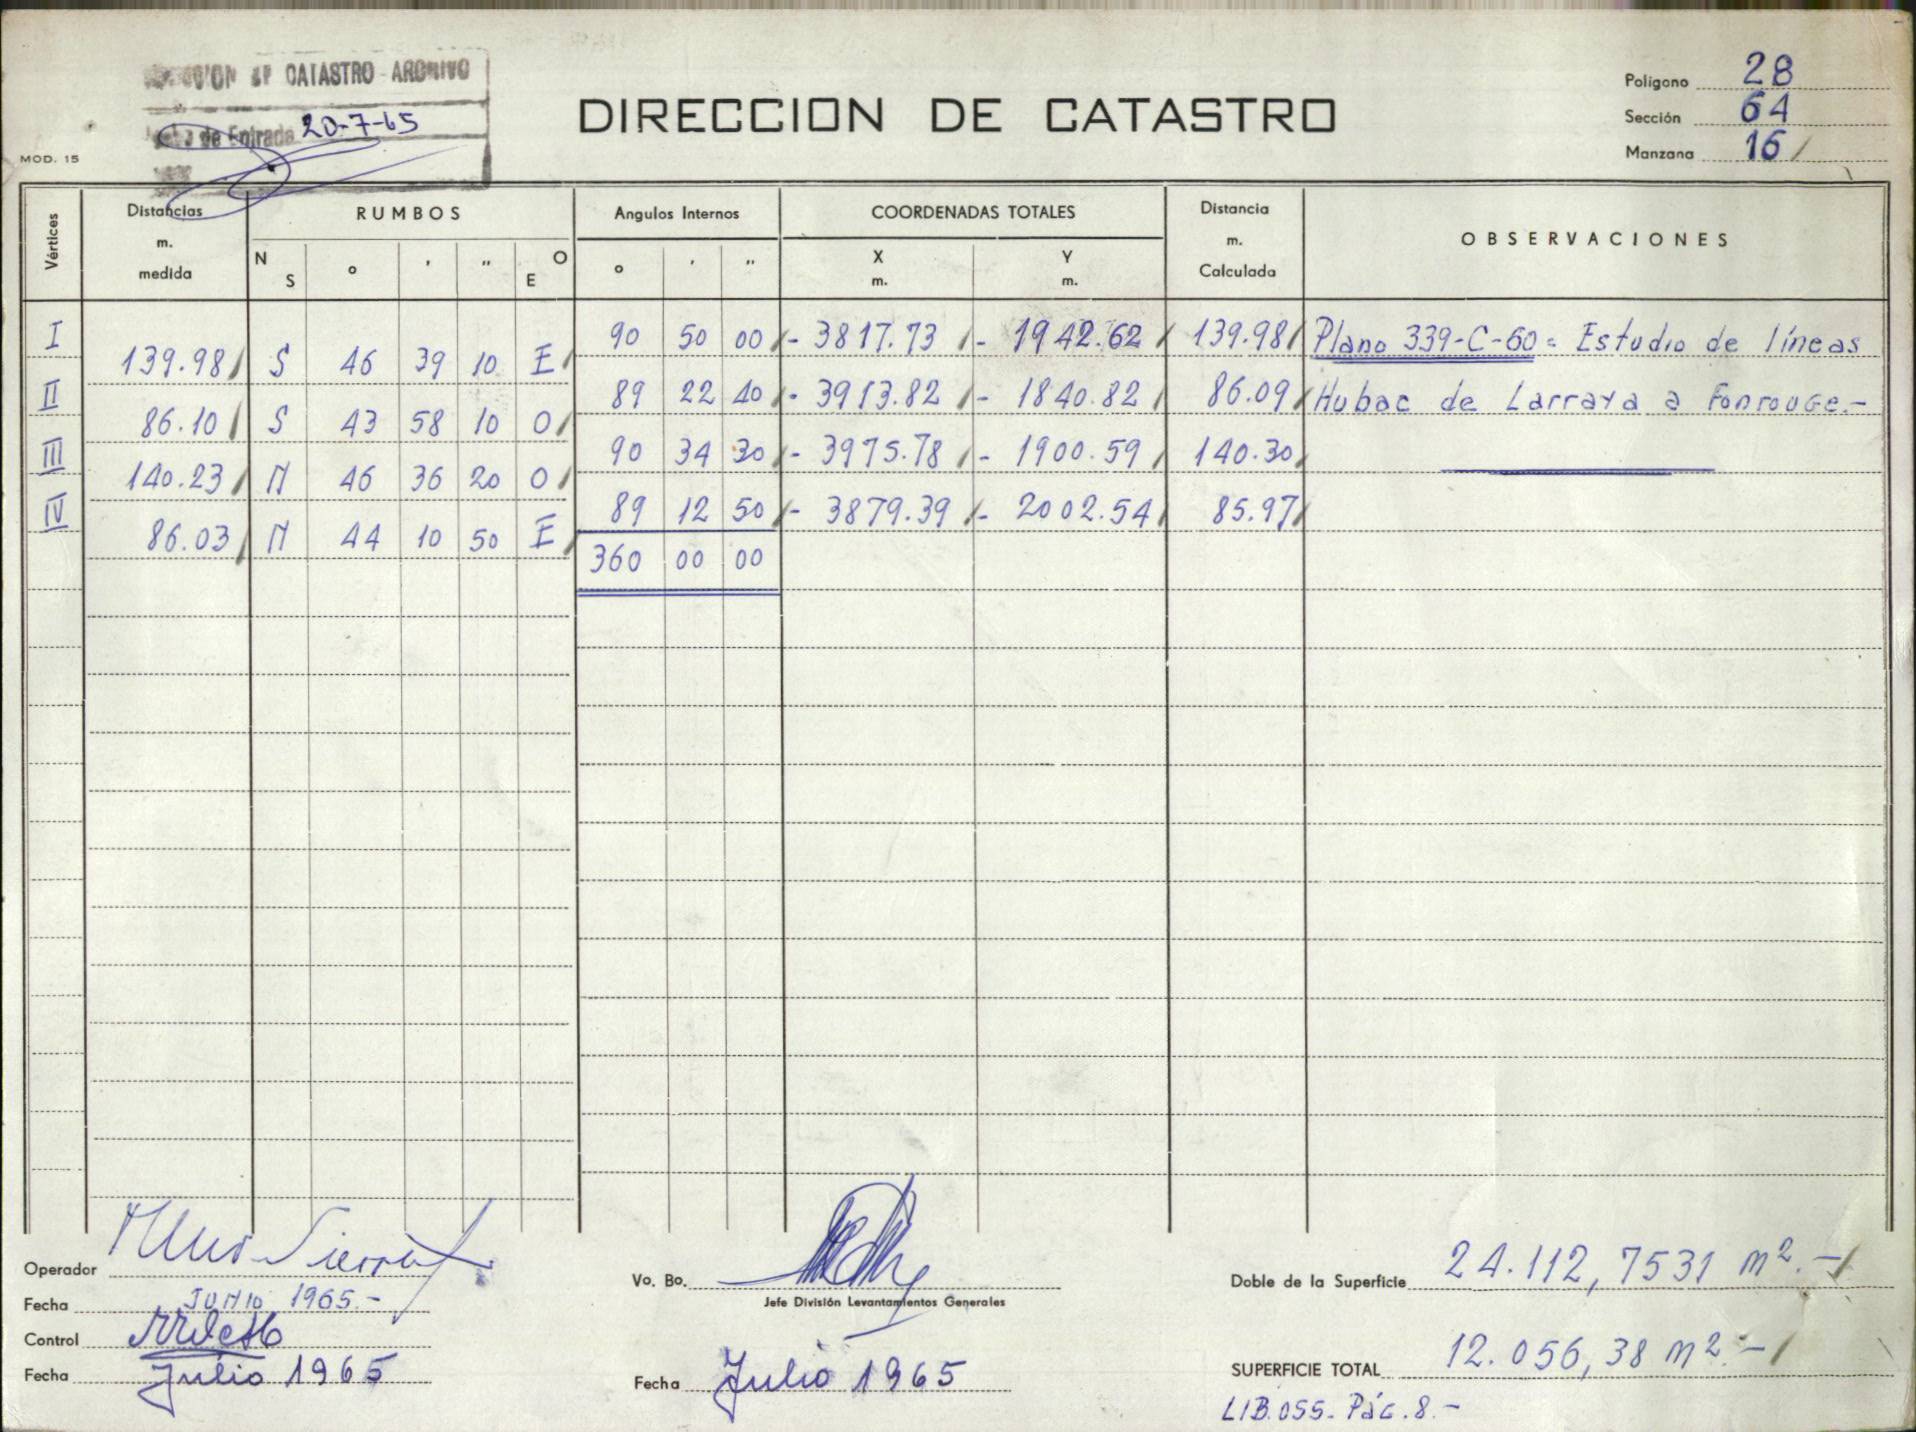 CATASTRO - ARCHIVO
de Entrada 20-7-65
MOD. 15
DIRECCION DE CATASTRO
Polígono 28
Sección 64
Manzana 16
Vértices
Distancias m. medida
RUMBOS
N S ° ' " O E
Angulos Internos
° ' "
COORDENADAS TOTALES
X m. Y m.
Distancia m. Calculada
OBSERVACIONES
I 90 50 00 - 3817.73 - 1942.62 139.98 Plano 339-C-60 = Estudio de líneas
139.98 S 46 39 10 E
II 89 22 40 - 3913.82 - 1840.82 86.09 Hubac de Larraya a Fonrouge.-
86.10 S 43 58 10 O
III 90 34 30 - 3975.78 - 1900.59 140.30
140.23 N 46 36 20 O
IV 89 12 50 - 3879.39 - 2002.54 85.97
86.03 N 44 10 50 E
360 00 00
Operador
Fecha JUNIO 1965.-
Control
Fecha Julio 1965
Vo. Bo.
Jefe División Levantamientos Generales
Fecha Julio 1965
Doble de la Superficie 24.112,7531 m².-
SUPERFICIE TOTAL 12.056,38 m².-
LIB.055. Pág.8.-